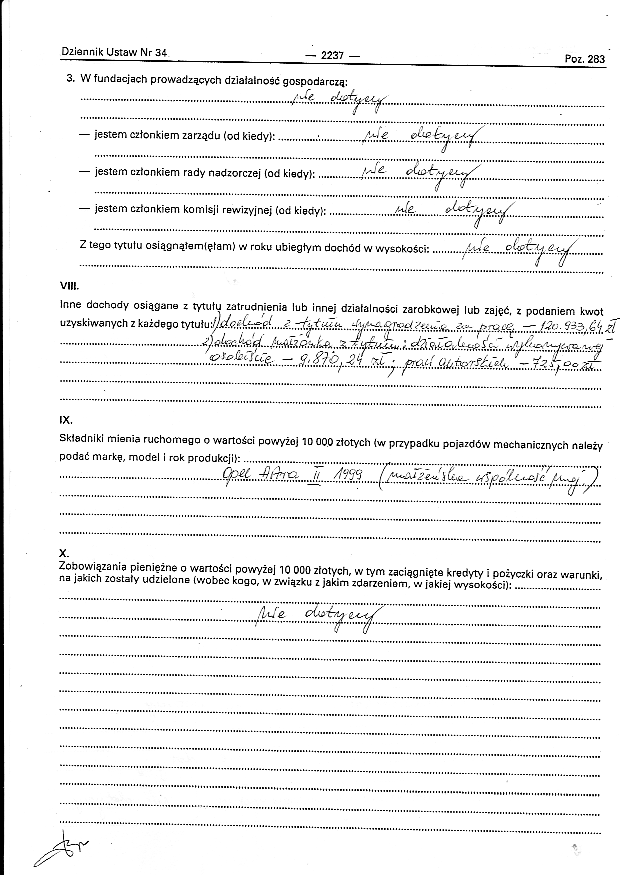 Dziennik Ustaw Nr 34
— 2237 —
Poz. 283
3. W fundacjach prowadzących działalność gospodarczą:
nie dotyczy
— jestem członkiem zarządu (od kiedy): nie dotyczy
— jestem członkiem rady nadzorczej (od kiedy): nie dotyczy
— jestem członkiem komisji rewizyjnej (od kiedy): nie dotyczy
Z tego tytułu osiągnąłem(ęłam) w roku ubiegłym dochód w wysokości: nie dotyczy
VIII.
Inne dochody osiągane z tytułu zatrudnienia lub innej działalności zarobkowej lub zajęć, z podaniem kwot
uzyskiwanych z każdego tytułu: 1) dochód z tytułu wynagrodzenia za pracę – 120.933,64 zł
2) dochód małżonka z tytułu: działalności wykonywanej
osobiście – 9.870,24 zł; praw autorskich – 725,00 zł
IX.
Składniki mienia ruchomego o wartości powyżej 10 000 złotych (w przypadku pojazdów mechanicznych należy
podać markę, model i rok produkcji):
Opel Astra II 1999 (małżeńska wspólność maj.)
X.
Zobowiązania pieniężne o wartości powyżej 10 000 złotych, w tym zaciągnięte kredyty i pożyczki oraz warunki,
na jakich zostały udzielone (wobec kogo, w związku z jakim zdarzeniem, w jakiej wysokości):
nie dotyczy